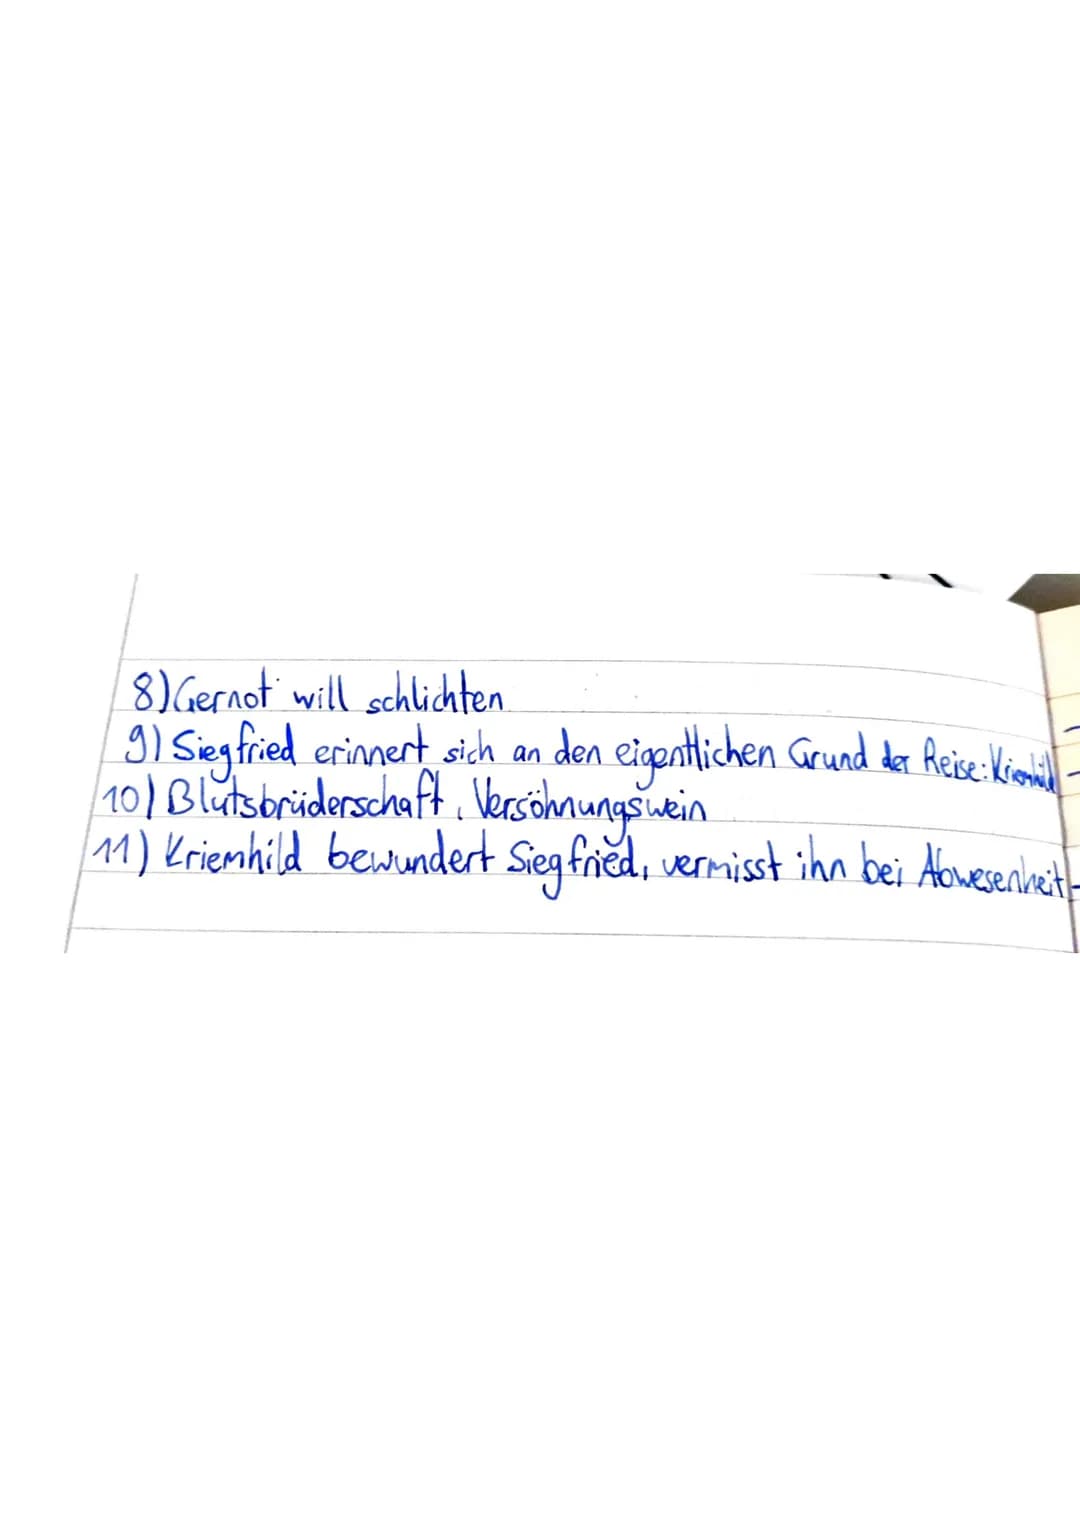 8) Gernot will schlichten
9) Siegfried erinnert sich an den eigentlichen Grund der Reise: Kriemhild
10) Blutsbrüderschaft, Versöhnungswein
11) Kriemhild bewundert Siegfried, vermisst ihn bei Abwesenheit